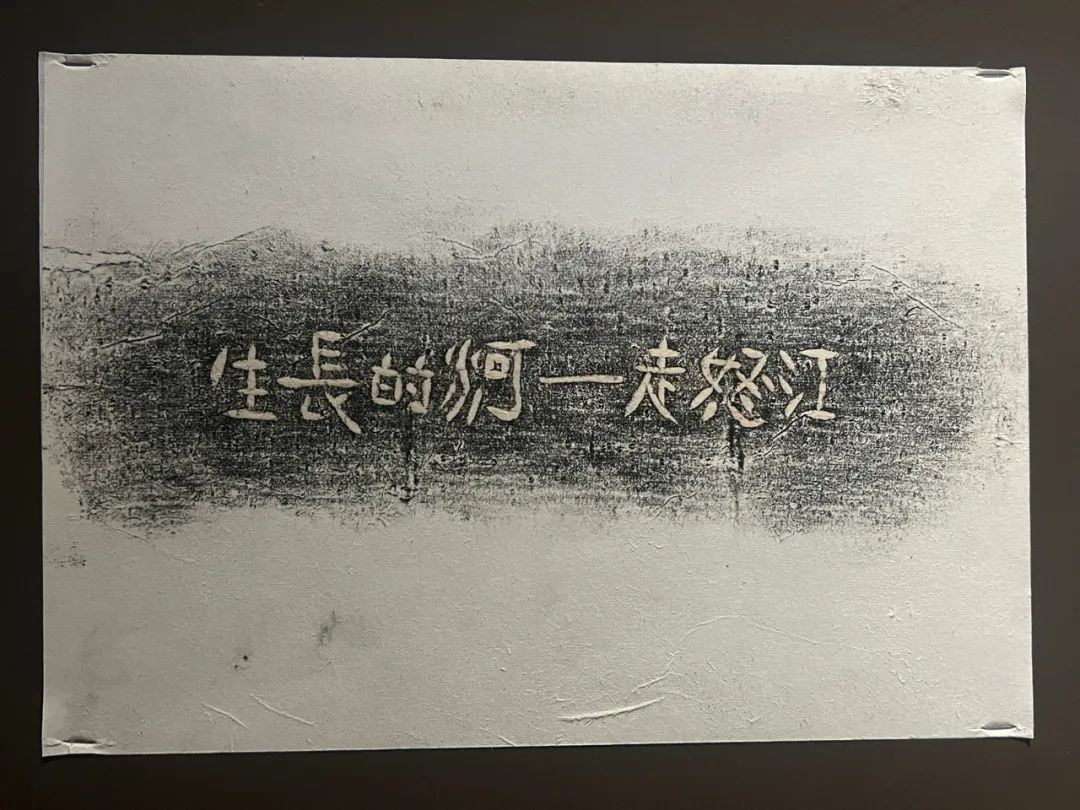 生長的河一走怒江